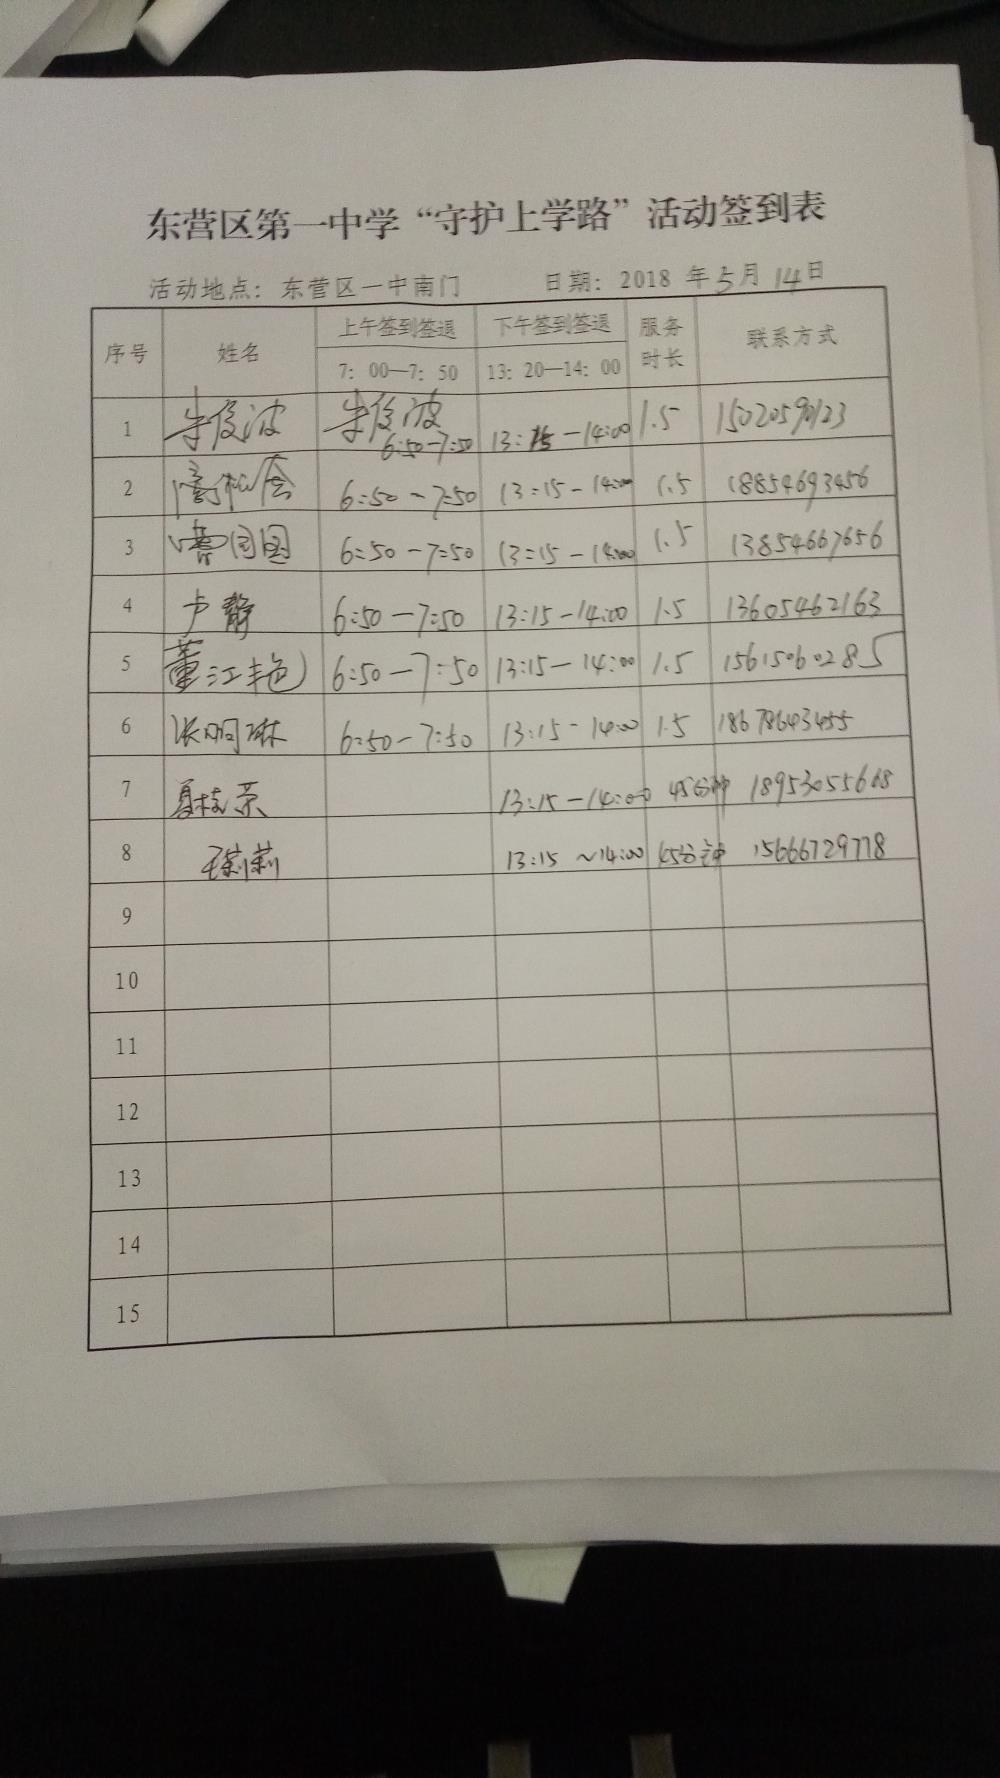 东营区第一中学“守护上学路”活动签到表
活动地点：东营区一中南门 日期：2018 年 5月 14日
序号 姓名 上午签到签退 下午签到签退 服务时长 联系方式
7：00—7：50 13：20—14：00
1 朱俊波 朱俊波 6:50-7:50 13:15-14:00 1.5
2 6:50-7:50 13:15-14:00 1.5 18854693456
3 6:50-7:50 13:15-14:00 1.5 13854667656
4 卢静 6:50-7:50 13:15-14:00 1.5 13605462163
5 董江艳 6:50-7:50 13:15-14:00 1.5 15615060285
6 6:50-7:50 13:15-14:00 1.5 18678643455
7 夏枝荣 13:15-14:00 45分钟 18953055668
8 王莉莉 13:15~14:00 45分钟 15666729778
9
10
11
12
13
14
15